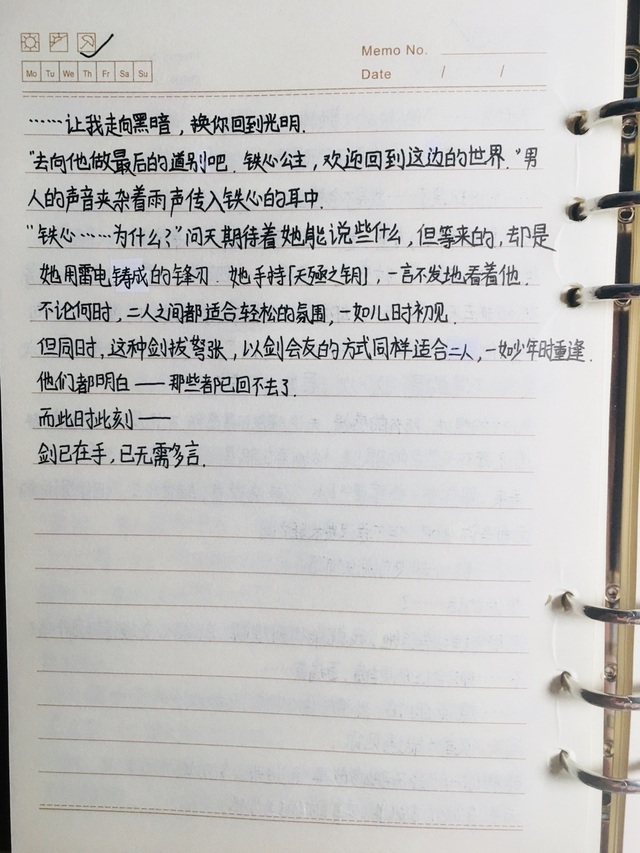 Memo No.
Mo Tu We Th Fr Sa Su
Date / /
……让我走向黑暗，换你回到光明.
“去向他做最后的道别吧.铁心公主，欢迎回到这边的世界.”男
人的声音夹杂着雨声传入铁心的耳中.
“铁心……为什么?”问天期待着她能说些什么，但等来的，却是
她用雷电铸成的锋刃.她手持「天殛之钥」，一言不发地看着他.
不论何时，二人之间都适合轻松的氛围，一如儿时初见.
但同时，这种剑拔弩张，以剑会友的方式同样适合二人，一如少年时重逢.
他们都明白——那些都已回不去了.
而此时此刻——
剑已在手，已无需多言.